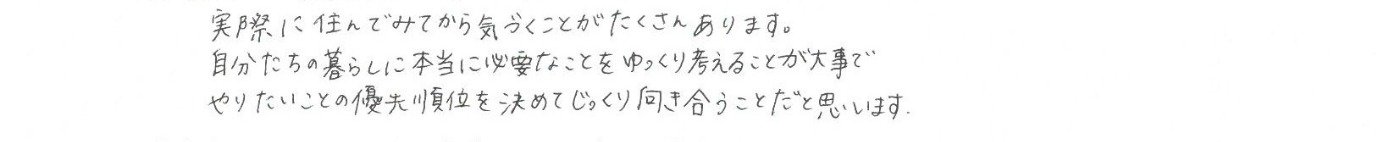 実際に住んでみてから気づくことがたくさんあります。
自分たちの暮らしに本当に必要なことをゆっくり考えることが大事で
やりたいことの優先順位を決めてじっくり向き合うことだと思います.